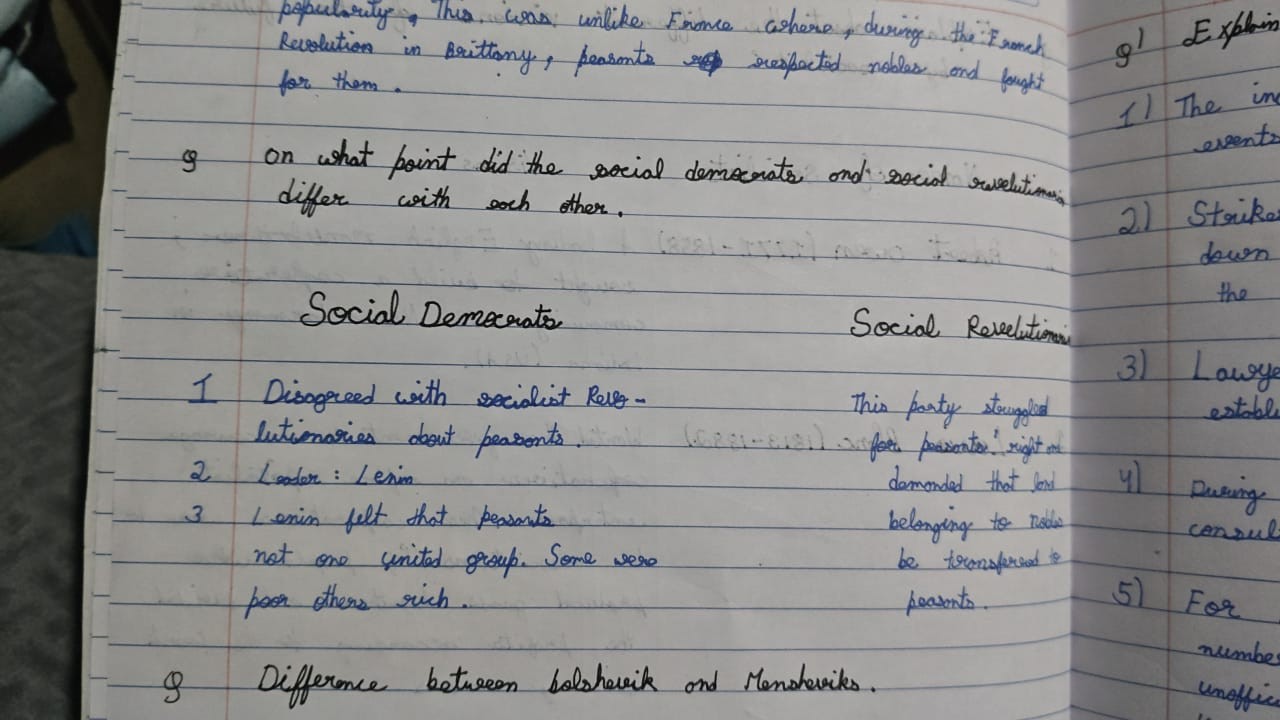 popularity, This was unlike France where, during the French
Revolution in Brittany, peasants respected nobles and fought
for them.
g on what point did the social democrats and social revolutionaries
differ with each other.
Social Democrats Social Revolutionaries
1 Disagreed with socialist Revo-
lutionaries about peasants.
2 Leader : Lenin
3 Lenin felt that peasants
not one united group. Some were
poor others rich.
This party struggled
for peasants' right and
demanded that land
belonging to nobles
be transfered to
peasants.
g Difference between bolshevik and Mensheviks.
g' Explain
1) The
events
2) Strikes
down
the
3)
4) During
5) For